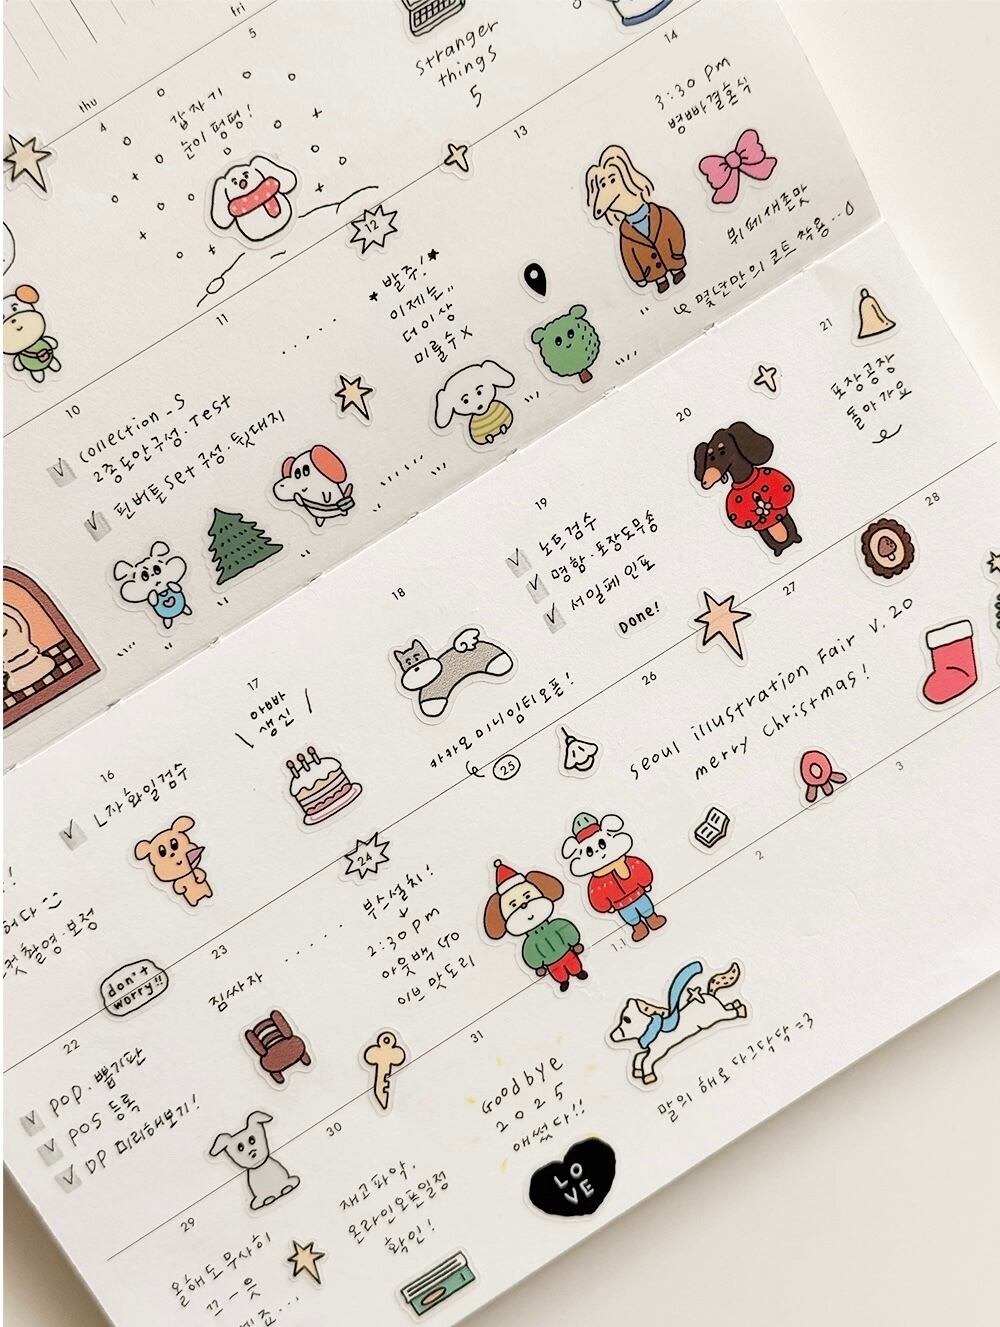 thu
fri
4
5
갑자기
눈이 펑펑!
stranger
things
5
10
✓ collection_s
2종도안구성. Test
✓ 핀버튼set 구성. 뒷대지
11
12
*발주!*
이제는..
더이상
미룰수x
13
14
3:30 pm
벙빠결혼식
뷔페새존맛
몇년만의 코트 착용..
16
✓ L자화일검수
17
아빠
생신
18
카카오미니임티오픈!
19
✓ 노트검수
✓ 명함·포장도무송
✓ 서일페 인포
Done!
20
21
포장공장
돌아가요
촬영·보정
22
don't
worry!!
✓ POP. 뽑기판
✓ POS 등록
✓ DP 미리해보기!
23
짐싸자
24
부스설치!
2:30 pm
아웃백 GO
이브 맛도리
25
26
27
28
seoul illustration Fair V.20
merry christmas!
29
올해도무사히
끄-읏
30
재고파악.
온라인오픈일정
확인!
31
Goodbye
2025
애썼다!!
LO
VE
1.1
말의 해로 다그닥닥닥 =3
2
3